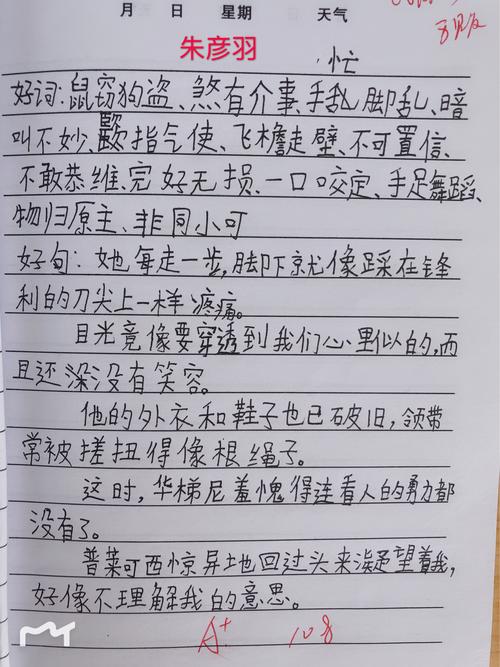 月 日 星期 天气
朱彦羽
忙
好词:鼠窃狗盗、煞有介事、手乱脚乱、暗
叫不妙、颐指气使、飞檐走壁、不可置信、
不敢恭维、完好无损、一口咬定、手足舞蹈、
物归原主、非同小可
好句:她每走一步,脚下就像踩在锋
利的刀尖上一样疼痛。
目光竟像要穿透到我们心里似的,而
且还深没有笑容。
他的外衣和鞋子也已破旧,领带
常被搓扭得像根绳子。
这时,华梯尼羞愧得连看人的勇力都
没有了。
普莱可西惊异地回过头来凝望着我,
好像不理解我的意思。
A+ 108